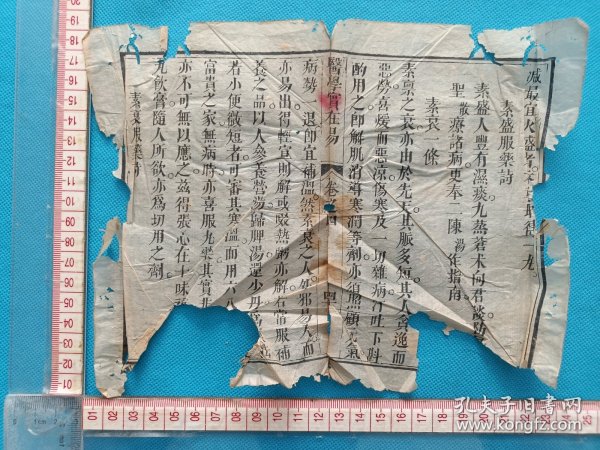 素盛服藥詩
素盛人豐有濕痰九蒸蒼朮何君談防
聖散療諸病更奉二陳湯作指南
素衰一條
素稟之衰亦由於先天其脈多短其人貪逸而
惡勞喜煖而惡涼傷寒及一切雜病汗吐下斟
酌用之即解肌消導寒瀉等劑亦須照顧元氣
醫學實在易
卷
病勢退即宜補溫然素衰之人外邪易入而
亦易出得輕宣則解或啜熱粥亦解若常服補
養之品以人參養營湯歸脾湯還少丹
若小便微短者可審其寒溫而用六八
富貴之家無病時亦喜服丸藥其實
亦不可無以應之茲得張心在十味
九飲膏隨人所欲亦為切用之劑
素衰服藥詩
孔夫子旧书网